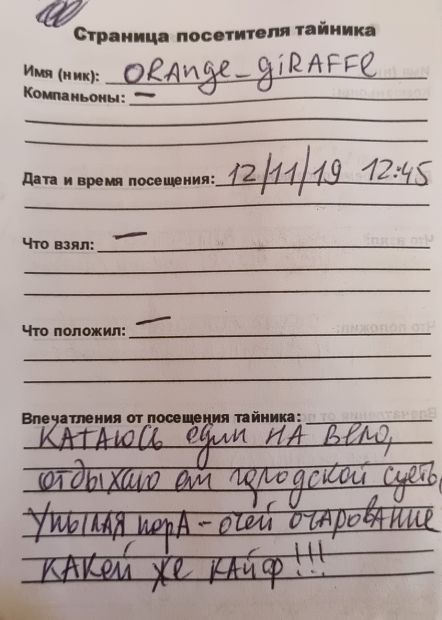 Страница посетителя тайника
Имя (ник): ORAnge_giRAFFe
Компаньоны: —
Дата и время посещения: 12/11/19 12:45
Что взял: —
Что положил: —
Впечатления от посещения тайника:
КАТАЮСЬ один НА вело,
отдыхаю от городской суеты,
Унылая порА - очей очарование
КАКОЙ же кайф!!!